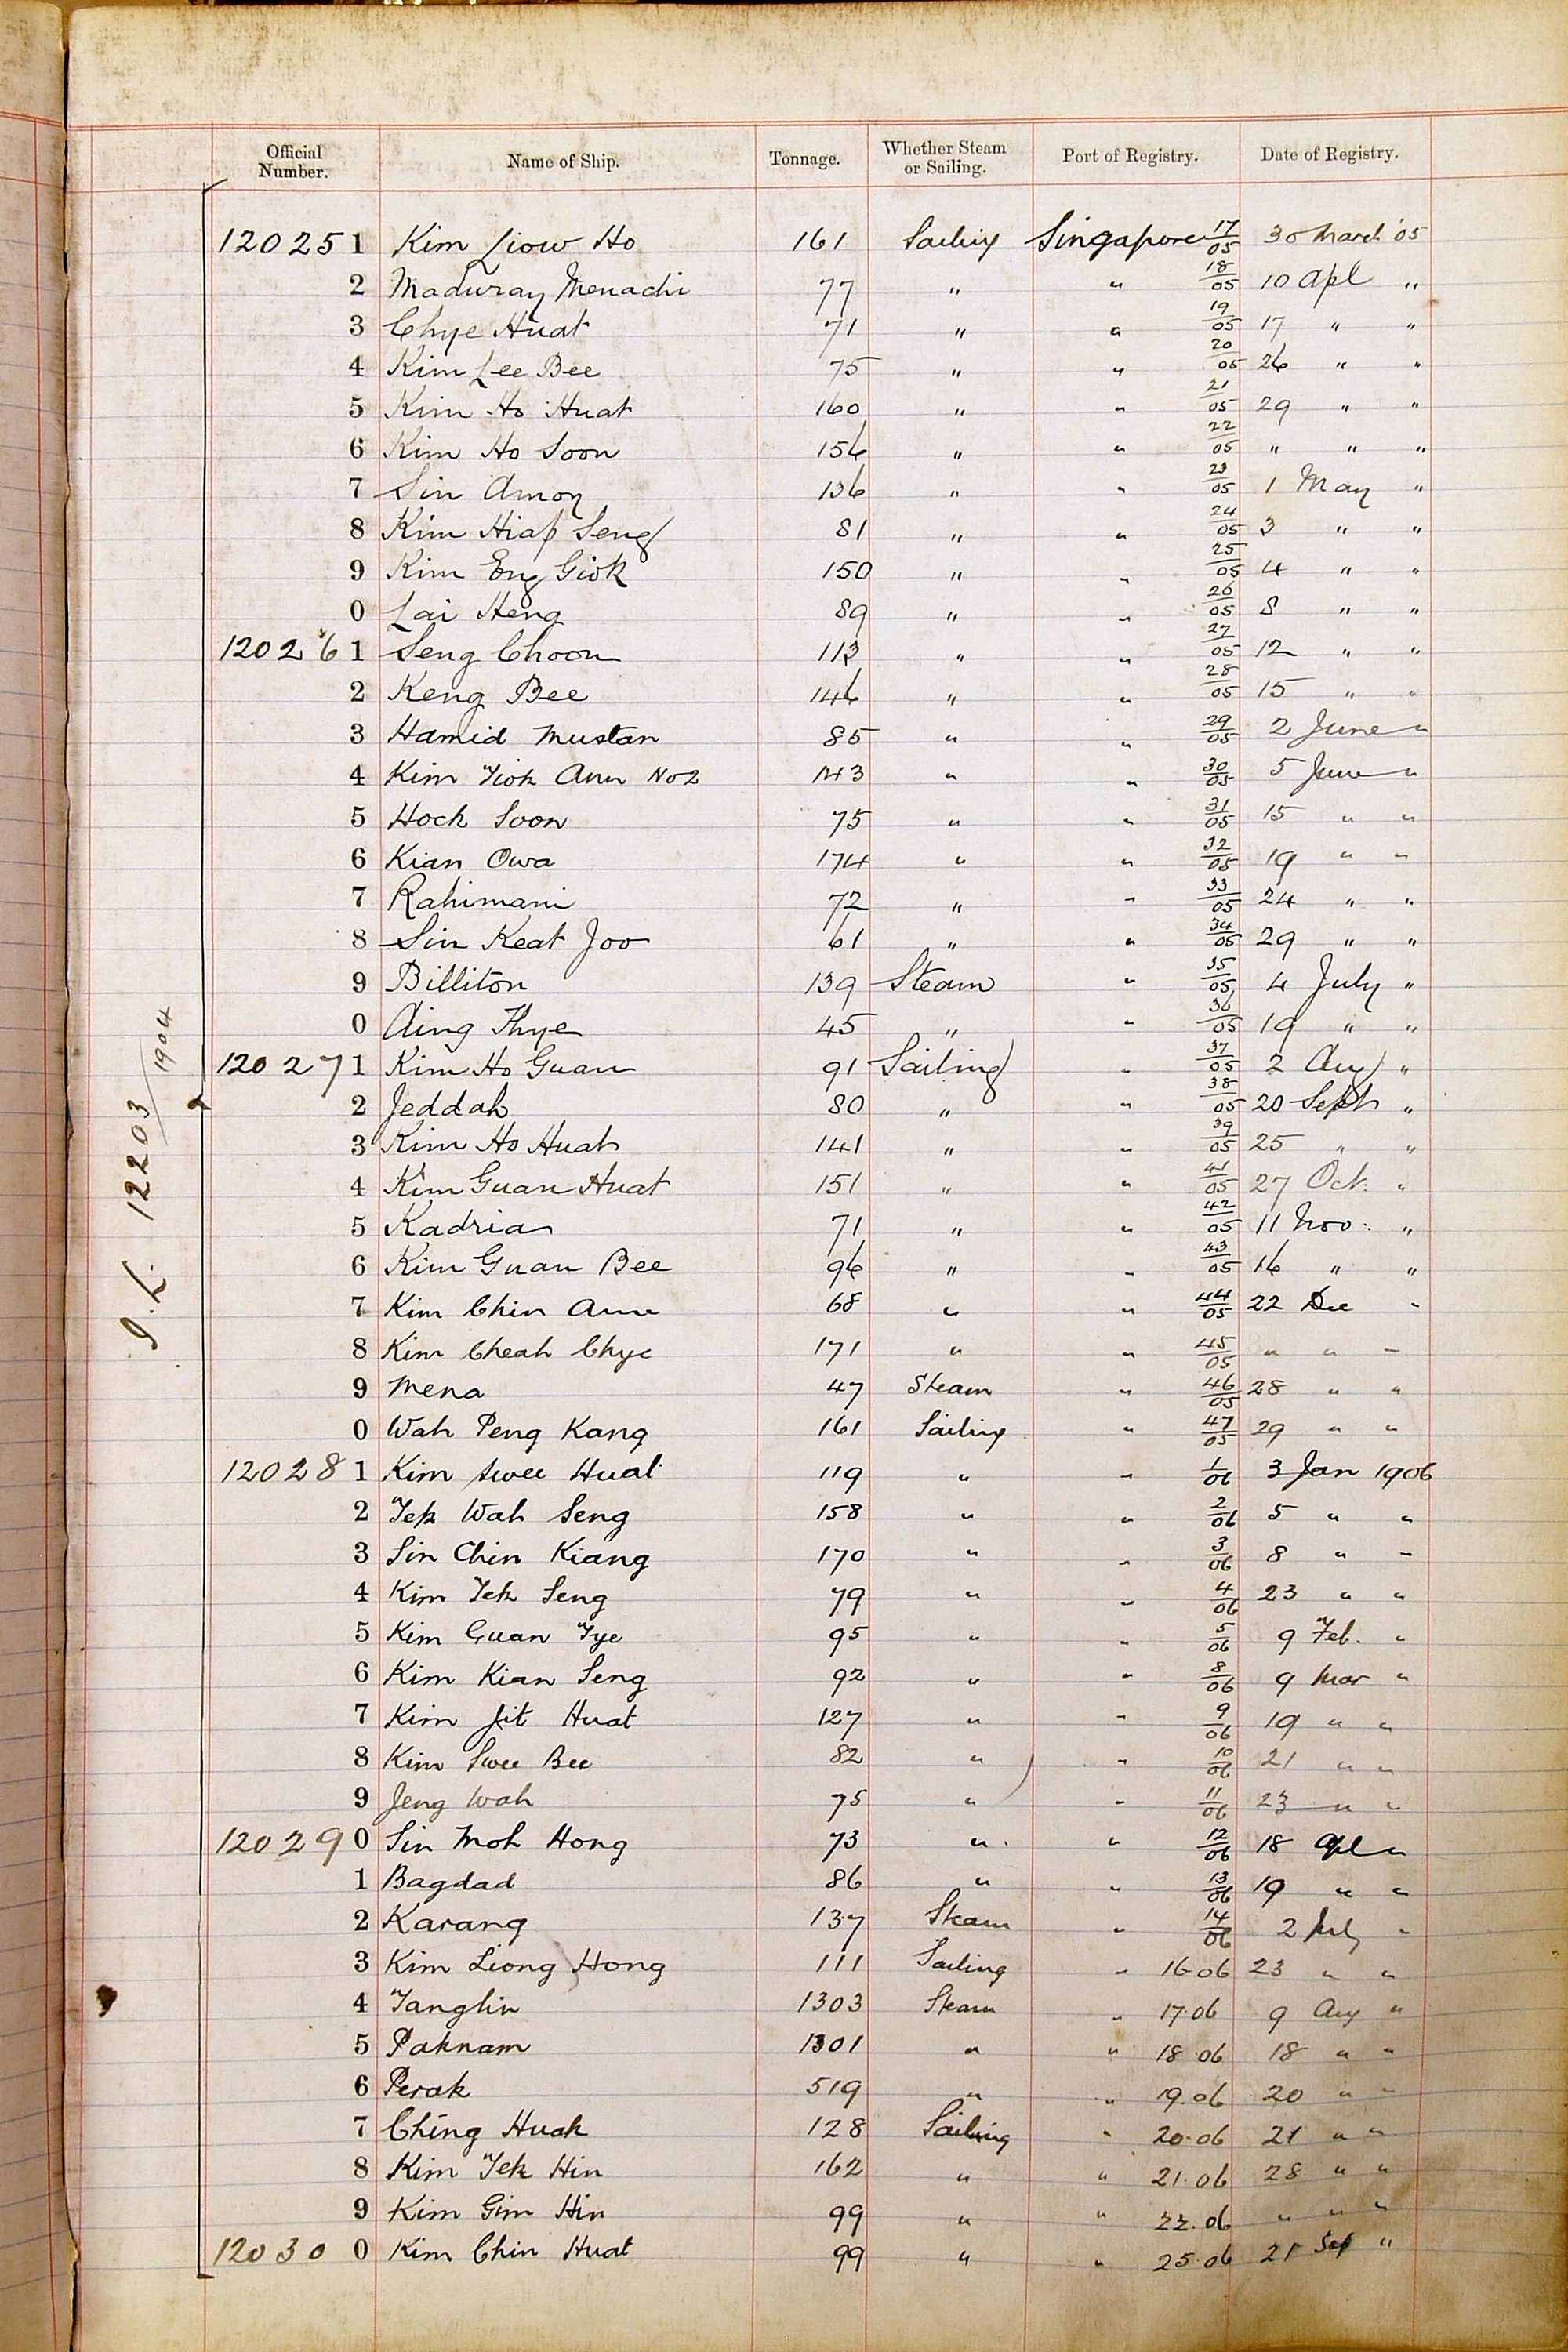 Official Number. Name of Ship. Tonnage. Whether Steam or Sailing. Port of Registry. Date of Registry.
120251 Kim Liow Ho 161 Sailing Singapore 17/05 30 March '05
2 Maduray Menachi 77 " " 18/05 10 Apl "
3 Chye Huat 71 " " 19/05 17 " "
4 Kim Lee Bee 75 " " 20/05 26 " "
5 Kim Ho Huat 160 " " 21/05 29 " "
6 Kim Ho Soon 156 " " 22/05 " " "
7 Sin Amoy 136 " " 23/05 1 May "
8 Kim Hiap Seng 81 " " 24/05 3 " "
9 Kim Eng Giok 150 " " 25/05 4 " "
0 Lai Heng 89 " " 26/05 8 " "
120261 Seng Choon 113 " " 27/05 12 " "
2 Keng Bee 146 " " 28/05 15 " "
3 Hamid Mustan 85 " " 29/05 2 June "
4 Kim Yiok Ann No 2 143 " " 30/05 5 June "
5 Hock Soon 75 " " 31/05 15 " "
6 Kian Owa 174 " " 32/05 19 " "
7 Rahimani 72 " " 33/05 24 " "
8 Sin Keat Joo 61 " " 34/05 29 " "
9 Billiton 139 Steam " 35/05 4 July "
0 Aing Thye 45 " " 36/05 19 " "
120271 Kim Ho Guan 91 Sailing " 37/05 2 Aug "
2 Jeddah 80 " " 38/05 20 Sept "
3 Kim Ho Huat 141 " " 39/05 25 " "
4 Kim Guan Huat 151 " " 41/05 27 Oct. "
5 Kadria 71 " " 42/05 11 Nov. "
6 Kim Guan Bee 96 " " 43/05 16 " "
7 Kim Chin Ann 68 " " 44/05 22 Dec "
8 Kim Cheah Chye 171 " " 45/05 " " "
9 Mena 47 Steam " 46/05 28 " "
0 Wah Peng Kang 161 Sailing " 47/05 29 " "
120281 Kim Swee Huat 119 " " 1/06 3 Jan 1906
2 Tek Wah Seng 158 " " 2/06 5 " "
3 Sin Chin Kiang 170 " " 3/06 8 " "
4 Kim Tek Seng 79 " " 4/06 23 " "
5 Kim Guan Tye 95 " " 5/06 9 Feb. "
6 Kim Kian Seng 92 " " 8/06 9 Mar "
7 Kim Jit Huat 127 " " 9/06 19 " "
8 Kim Swee Bee 82 " " 10/06 21 " "
9 Jeng Wah 75 " " 11/06 23 " "
120290 Sin Moh Hong 73 " " 12/06 18 Apl "
1 Bagdad 86 " " 13/06 19 " "
2 Karang 137 Steam " 14/06 2 July "
3 Kim Liong Hong 111 Sailing " 16.06 23 " "
4 Tanglin 1303 Steam " 17.06 9 Aug "
5 Paknam 1301 " " 18.06 18 " "
6 Perak 519 " " 19.06 20 " "
7 Ching Huah 128 Sailing " 20.06 21 " "
8 Kim Tek Hin 162 " " 21.06 28 " "
9 Kim Gim Hin 99 " " 22.06 " " "
120300 Kim Chin Huat 99 " " 25.06 21 Sep "
12203/1904